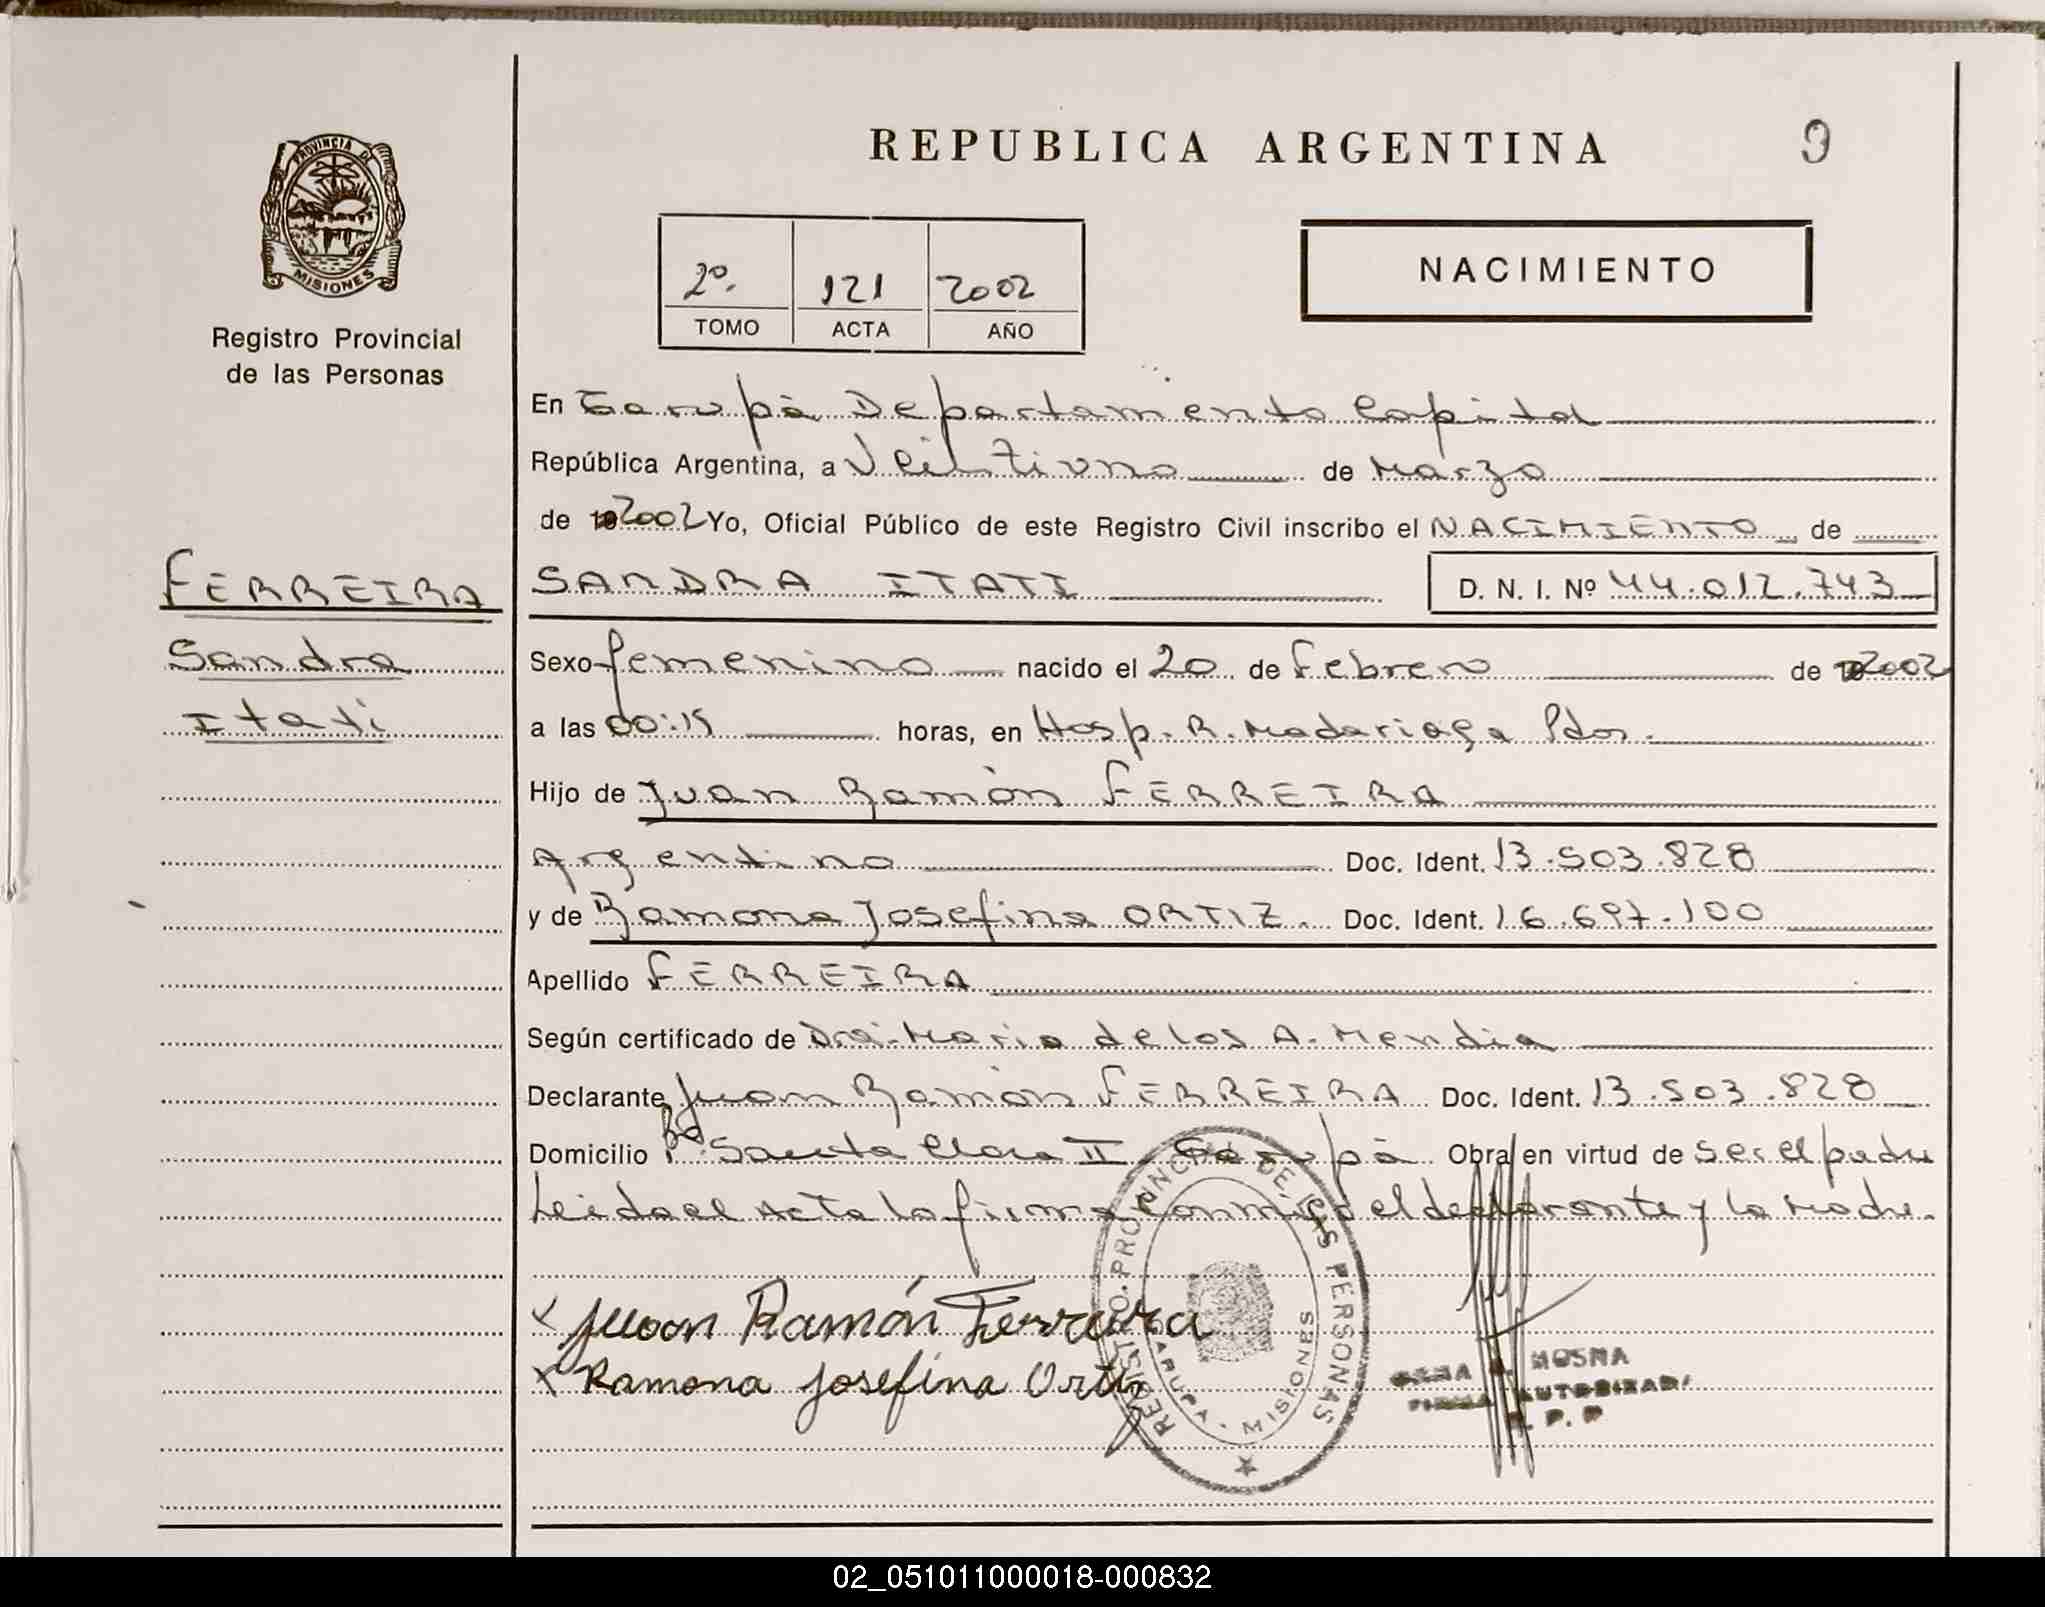 REPUBLICA ARGENTINA
9
PROVINCIA DE
MISIONES
Registro Provincial
de las Personas
2º. 121 2002
TOMO ACTA AÑO
NACIMIENTO
En Garupá Departamento Capital
República Argentina, a Veintiuno de Marzo
de 2002 Yo, Oficial Público de este Registro Civil inscribo el NACIMIENTO de
FERREIRA
Sandra
Itatí
SANDRA ITATI D. N. I. Nº 44.012.743
Sexo femenino nacido el 20 de Febrero de 2002
a las 00:15 horas, en Hosp. R. Madariaga Pdas.
Hijo de Juan Ramón FERREIRA
Argentino Doc. Ident. 13.503.828
y de Ramona Josefina ORTIZ. Doc. Ident. 16.697.100
Apellido FERREIRA
Según certificado de Dra. Maria de los A. Mendia
Declarante Juan Ramón FERREIRA Doc. Ident. 13.503.828
Domicilio Bº Santa Clara II Garupá Obra en virtud de ser el padre
Leida el Acta la firma conmigo el declarante y la Madre.
Juan Ramón Ferreira
Ramona Josefina Ortiz
REGISTRO PROVINCIAL DE LAS PERSONAS
GARUPA - MISIONES
MOSNA
FIRMA AUTORIZADA
R. P. P
02_051011000018-000832